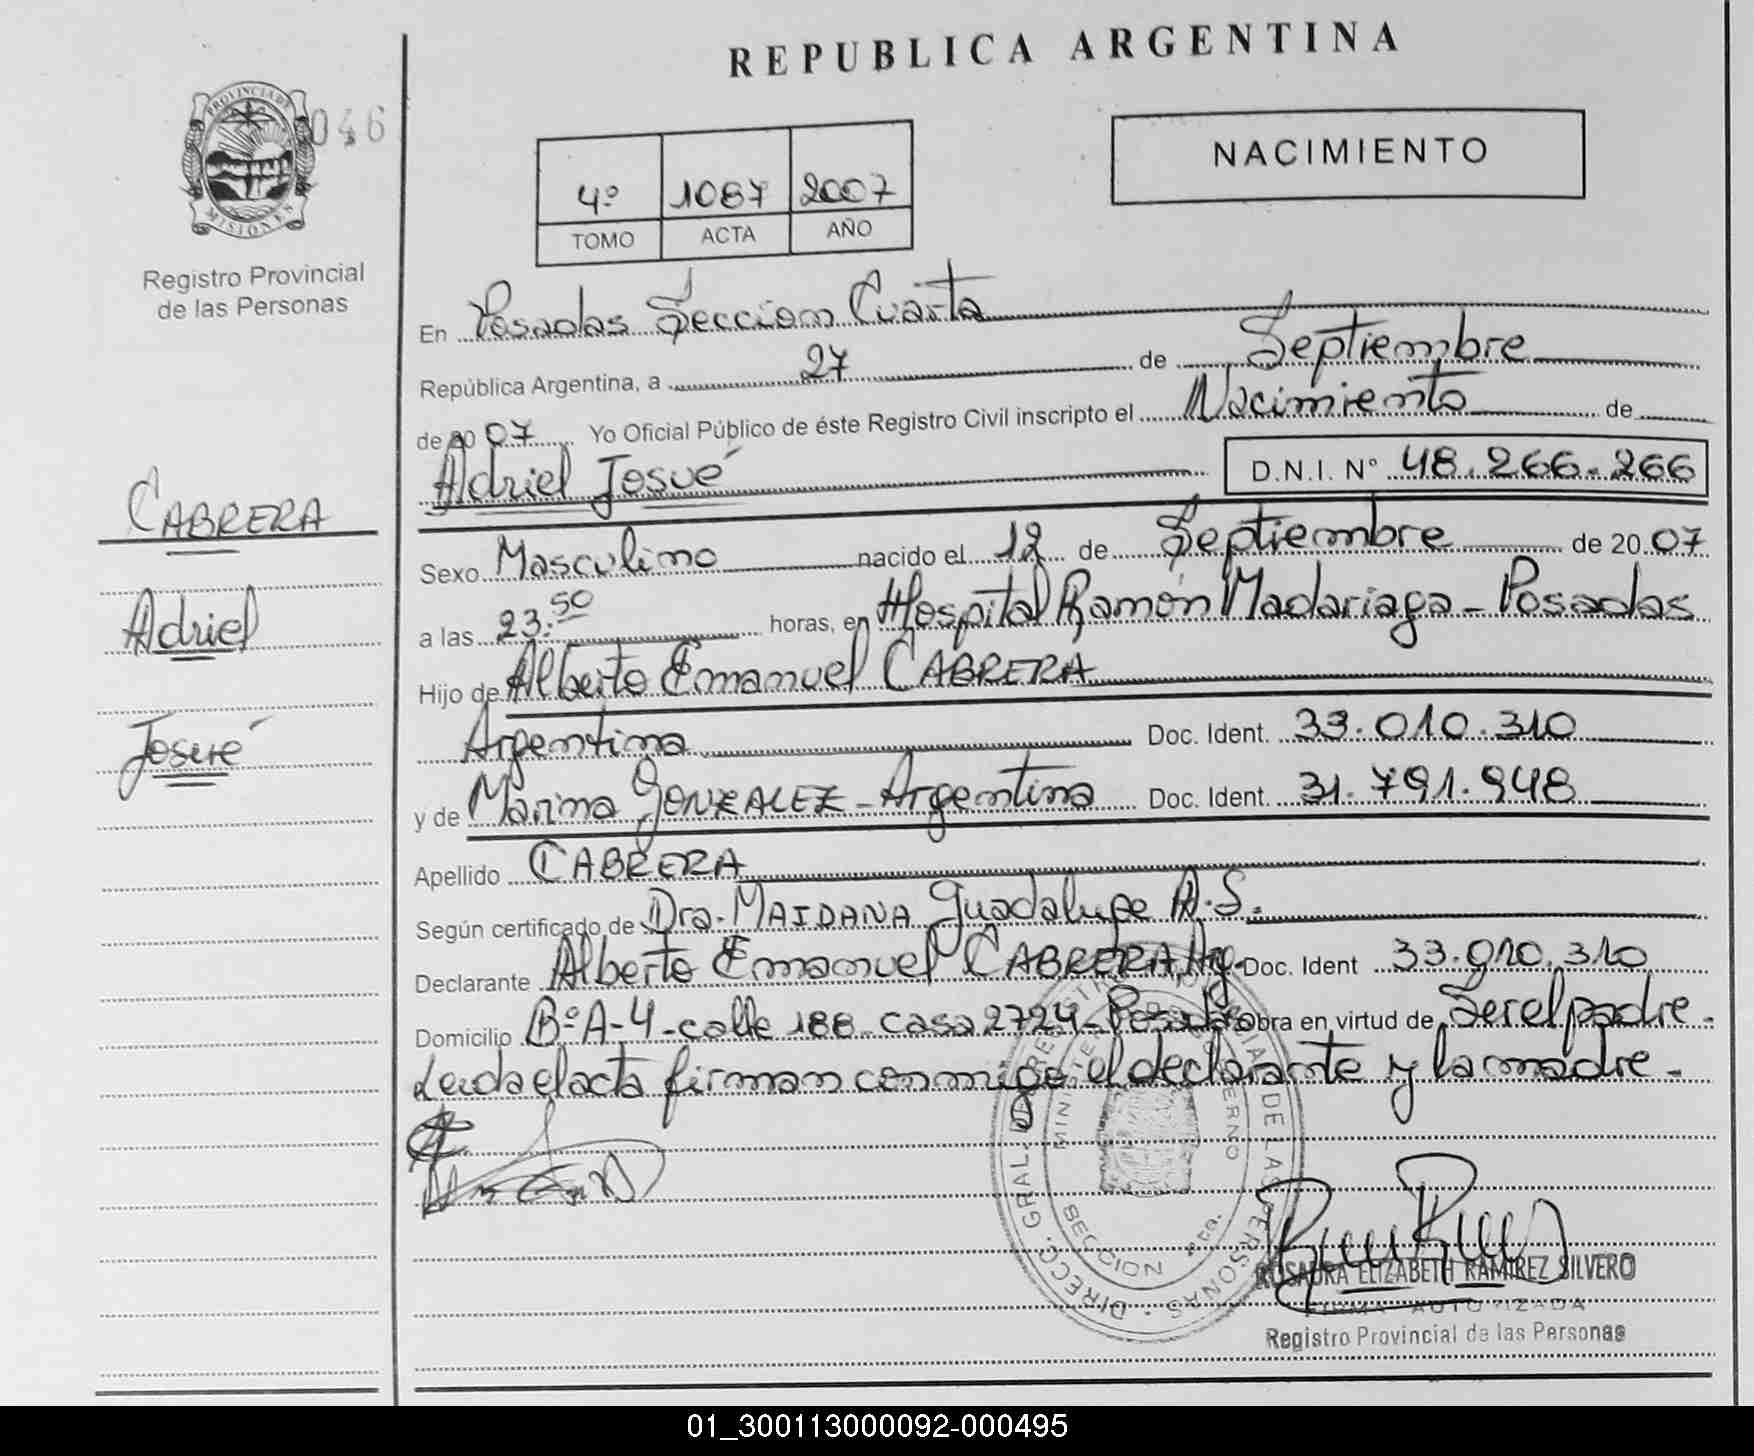 REPUBLICA ARGENTINA
PROVINCIA DE
MISIONES
046
Registro Provincial
de las Personas
NACIMIENTO
4º 1087 2007
TOMO ACTA AÑO
En Posadas Seccion Cuarta
República Argentina, a 27 de Septiembre
de 20 07 Yo Oficial Público de éste Registro Civil inscripto el Nacimiento de
Adriel Josué D.N.I. Nº 48.266.266
CABRERA
Adriel
Josué
Sexo Masculino nacido el 12 de Septiembre de 20 07
a las 23:50 horas, en Hospital Ramón Madariaga - Posadas
Hijo de Alberto Emanuel CABRERA
Argentina Doc. Ident. 33.010.310
y de Marina GONZALEZ - Argentina Doc. Ident. 31.791.948
Apellido CABRERA
Según certificado de Dra. MAIDANA Guadalupe A.S.
Declarante Alberto Emanuel CABRERA Arg. Doc. Ident 33.010.310
Domicilio Bº A-4 - calle 188 casa 2724 - Posadas obra en virtud de Ser el padre.
Leida el acta firman conmigo el declarante y la madre.
DIRECC. GRAL. DE REGISTRO PROVINCIAL DE LAS PERSONAS
SECCION
ROSAURA ELIZABETH RAMIREZ SILVERO
FIRMA AUTORIZADA
Registro Provincial de las Personas
01_300113000092-000495